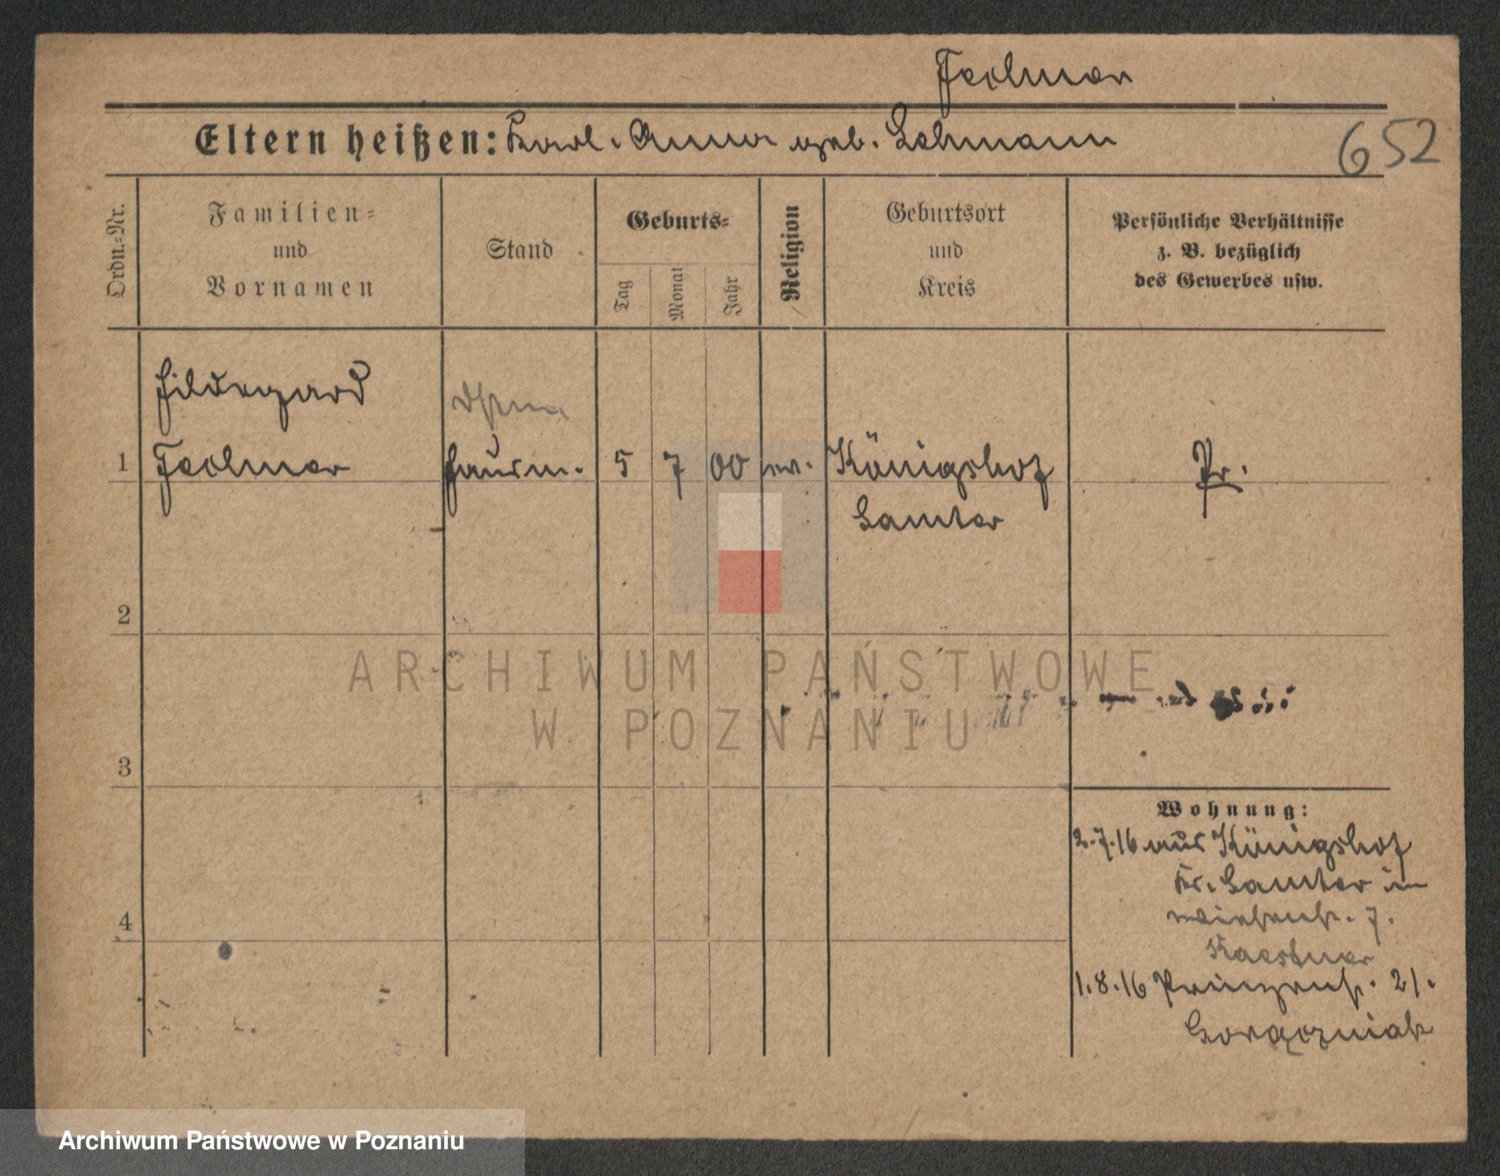 Feolmer
Eltern heißen: Karl. Anna geb. Lehmann
652
Ordn.=Nr.
Familien=
und
Vornamen
Stand
Geburts=
Tag
Monat
Jahr
Religion
Geburtsort
und
Kreis
Persönliche Verhältnisse
z. B. bezüglich
des Gewerbes usw.
Hildegard
1 Feolmer Hausm. 5 7 00 ev. Königshof Pr.
Samter
2
ARCHIWUM PAŃSTWOWE
W POZNANIU
3
Wohnung:
2.7.16 aus Königshof
Kr. Samter in
7.
Kaestner
4
1.8.16 Prinzenstr. 21.
Archiwum Państwowe w Poznaniu